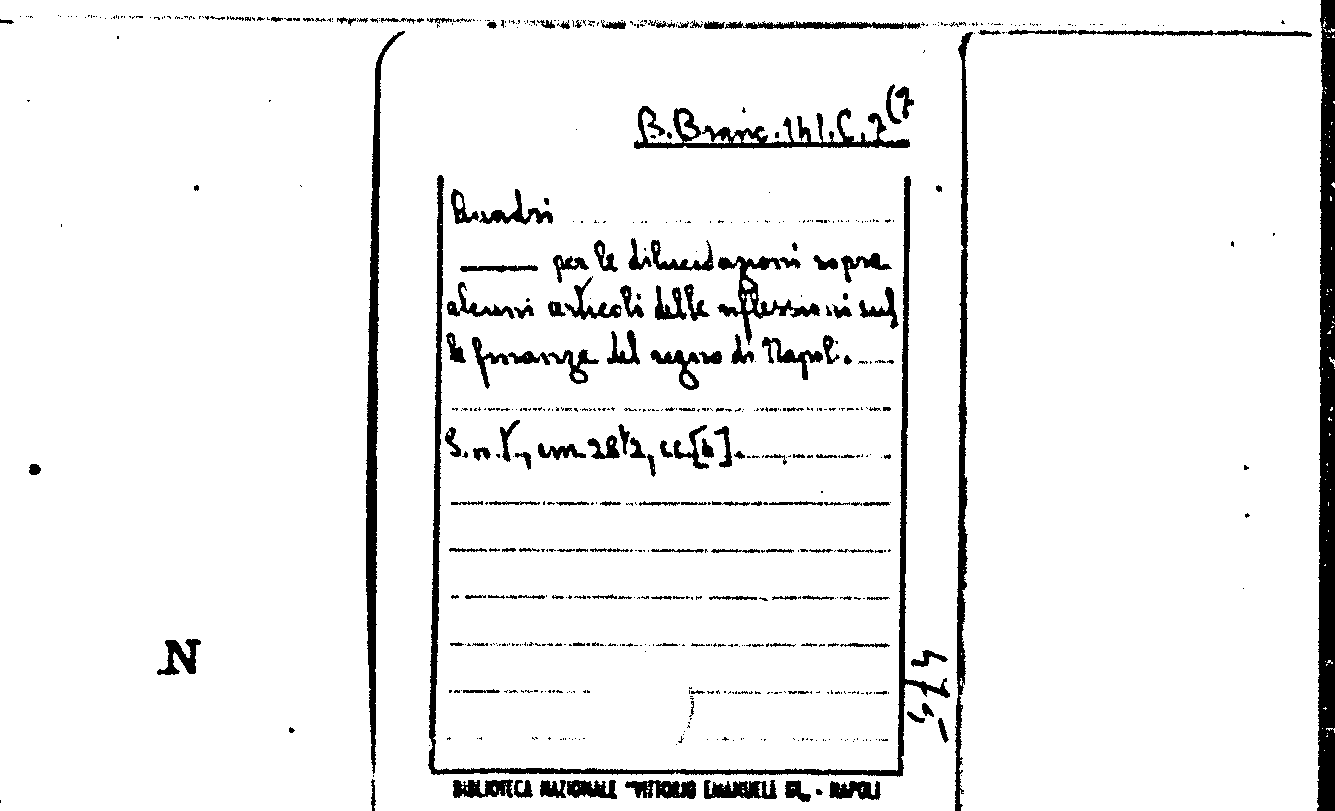 B. Branc. 141. C. 7 (7
Quadri
——— per le dilucidazioni sopra
alcuni articoli delle riflessioni sul
le finanze del regno di Napoli.
S.n.t., cm. 28½, cc. [4].
N
BIBLIOTECA NAZIONALE "VITTORIO EMANUELE III„ - NAPOLI